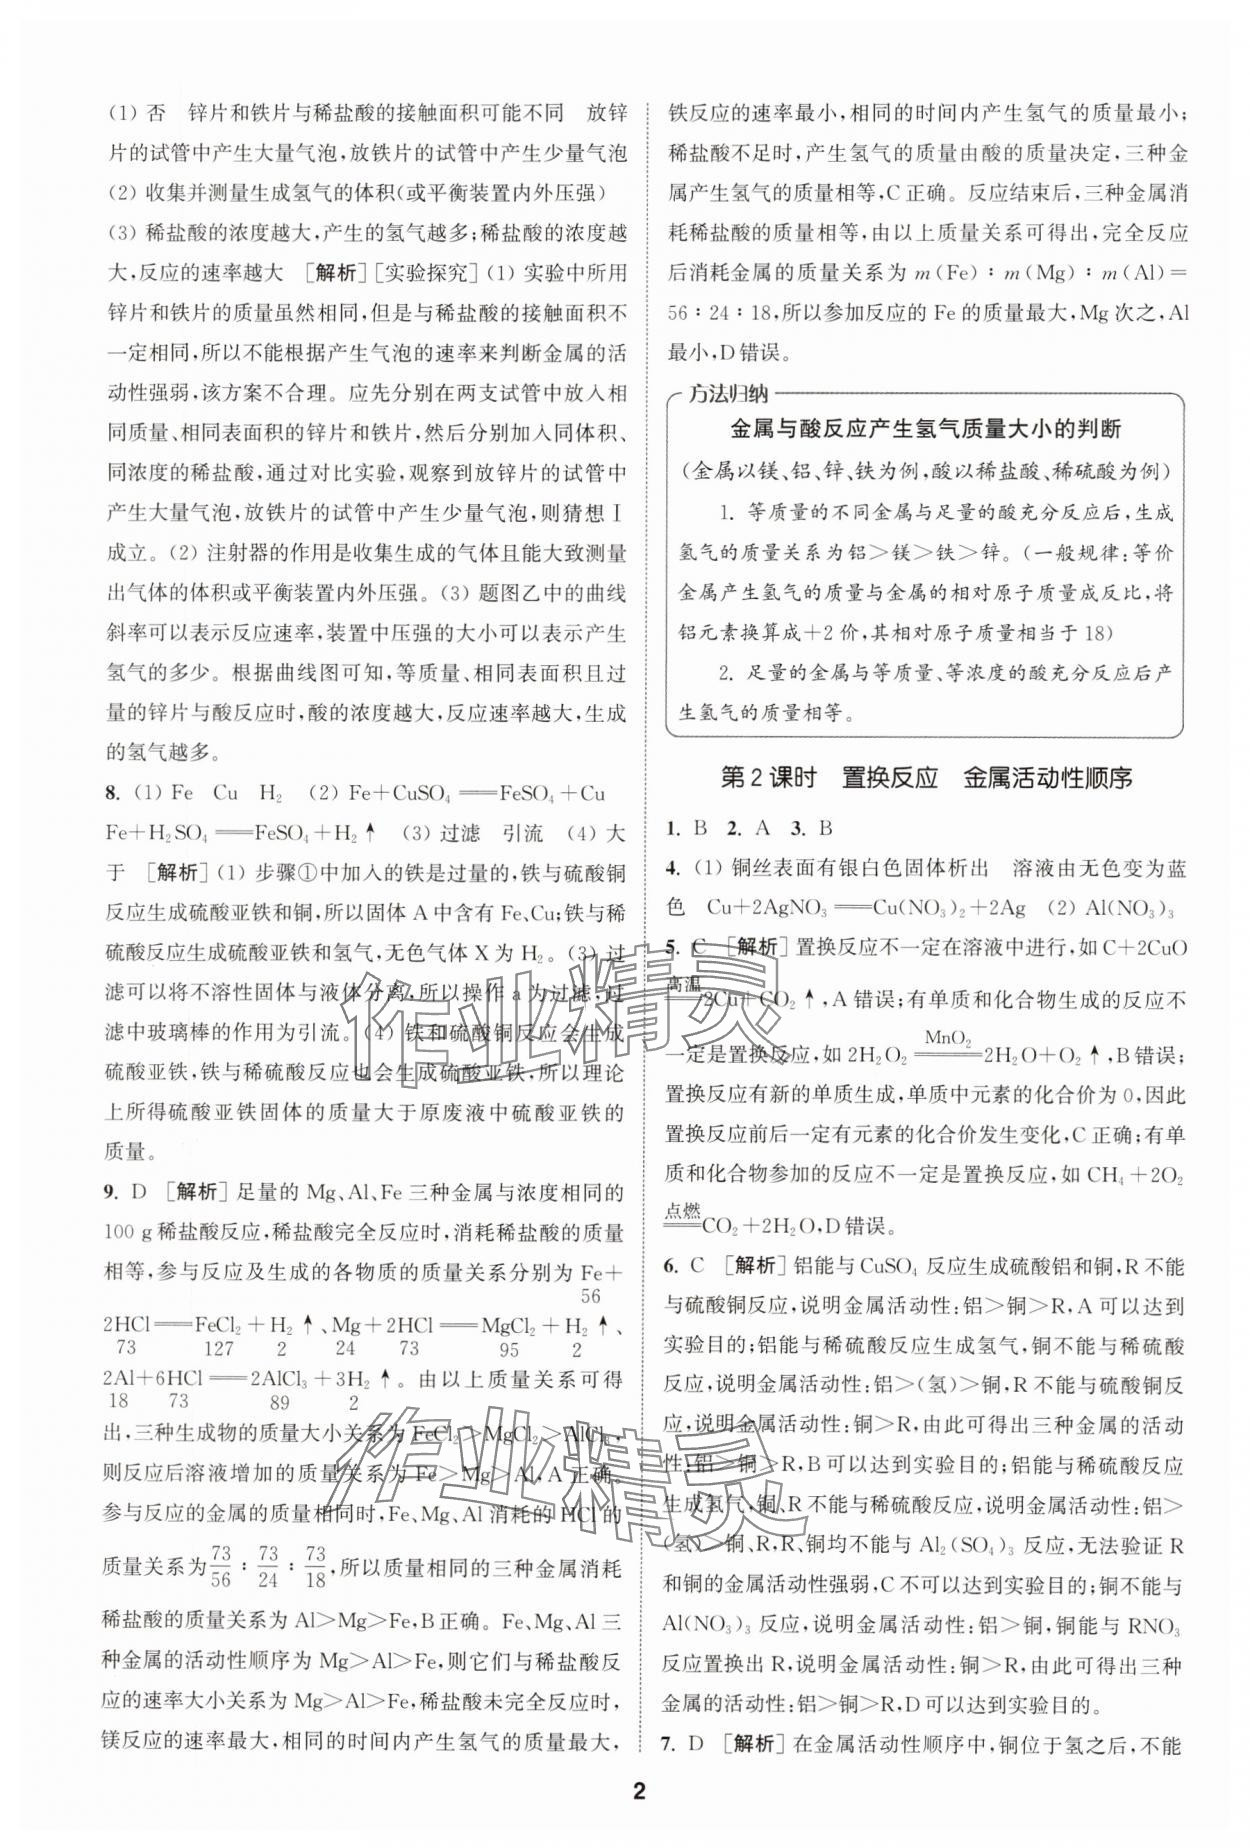 (1) 否　锌片和铁片与稀盐酸的接触面积可能不同　放锌
片的试管中产生大量气泡,放铁片的试管中产生少量气泡
(2) 收集并测量生成氢气的体积(或平衡装置内外压强)
(3) 稀盐酸的浓度越大,产生的氢气越多;稀盐酸的浓度越
大,反应的速率越大　[解析][实验探究](1) 实验中所用
锌片和铁片的质量虽然相同,但是与稀盐酸的接触面积不
一定相同,所以不能根据产生气泡的速率来判断金属的活
动性强弱,该方案不合理。应先分别在两支试管中放入相
同质量、相同表面积的锌片和铁片,然后分别加入同体积、
同浓度的稀盐酸,通过对比实验,观察到放锌片的试管中
产生大量气泡,放铁片的试管中产生少量气泡,则猜想Ⅰ
成立。(2) 注射器的作用是收集生成的气体且能大致测量
出气体的体积或平衡装置内外压强。(3) 题图乙中的曲线
斜率可以表示反应速率,装置中压强的大小可以表示产生
氢气的多少。根据曲线图可知,等质量、相同表面积且过
量的锌片与酸反应时,酸的浓度越大,反应速率越大,生成
的氢气越多。
8. (1) Fe　Cu　H₂　(2) Fe+CuSO₄══FeSO₄+Cu
Fe+H₂SO₄══FeSO₄+H₂↑　(3) 过滤　引流　(4) 大
于　[解析](1) 步骤①中加入的铁是过量的,铁与硫酸铜
反应生成硫酸亚铁和铜,所以固体 A 中含有 Fe、Cu;铁与稀
硫酸反应生成硫酸亚铁和氢气,无色气体 X 为 H₂。(3) 过
滤可以将不溶性固体与液体分离,所以操作 a 为过滤;过
滤中玻璃棒的作用为引流。(4) 铁和硫酸铜反应会生成
硫酸亚铁,铁与稀硫酸反应也会生成硫酸亚铁,所以理论
上所得硫酸亚铁固体的质量大于原废液中硫酸亚铁的
质量。
9. D　[解析]足量的 Mg、Al、Fe 三种金属与浓度相同的
100 g 稀盐酸反应,稀盐酸完全反应时,消耗稀盐酸的质量
相等,参与反应及生成的各物质的质量关系分别为 Fe+
56
2HCl══FeCl₂+H₂↑、Mg+2HCl══MgCl₂+H₂↑、
73　127　2　24　73　95　2
2Al+6HCl══2AlCl₃+3H₂↑。由以上质量关系可得
18　73　89　2
出,三种生成物的质量大小关系为 FeCl₂>MgCl₂>AlCl₃,
则反应后溶液增加的质量关系为 Fe>Mg>Al,A 正确。
参与反应的金属的质量相同时,Fe、Mg、Al 消耗的 HCl 的
质量关系为73/56：73/24：73/18,所以质量相同的三种金属消耗
稀盐酸的质量关系为 Al>Mg>Fe,B 正确。Fe、Mg、Al 三
种金属的活动性顺序为 Mg>Al>Fe,则它们与稀盐酸反
应的速率大小关系为 Mg>Al>Fe,稀盐酸未完全反应时,
镁反应的速率最大,相同的时间内产生氢气的质量最大,
铁反应的速率最小,相同的时间内产生氢气的质量最小;
稀盐酸不足时,产生氢气的质量由酸的质量决定,三种金
属产生氢气的质量相等,C 正确。反应结束后,三种金属消
耗稀盐酸的质量相等,由以上质量关系可得出,完全反应
后消耗金属的质量关系为 m(Fe)：m(Mg)：m(Al)=
56：24：18,所以参加反应的 Fe 的质量最大,Mg 次之,Al
最小,D 错误。
方法归纳
金属与酸反应产生氢气质量大小的判断
(金属以镁、铝、锌、铁为例,酸以稀盐酸、稀硫酸为例)
1. 等质量的不同金属与足量的酸充分反应后,生成
氢气的质量关系为铝>镁>铁>锌。(一般规律:等价
金属产生氢气的质量与金属的相对原子质量成反比,将
铝元素换算成+2 价,其相对原子质量相当于 18)
2. 足量的金属与等质量、等浓度的酸充分反应后产
生氢气的质量相等。
第 2 课时　置换反应　金属活动性顺序
1. B　2. A　3. B
4. (1) 铜丝表面有银白色固体析出　溶液由无色变为蓝
色　Cu+2AgNO₃══Cu(NO₃)₂+2Ag　(2) Al(NO₃)₃
5. C　[解析]置换反应不一定在溶液中进行,如 C+2CuO
高温══2Cu+CO₂↑,A 错误;有单质和化合物生成的反应不
一定是置换反应,如 2H₂O₂ MnO₂══ 2H₂O+O₂↑,B 错误;
置换反应有新的单质生成,单质中元素的化合价为 0,因此
置换反应前后一定有元素的化合价发生变化,C 正确;有单
质和化合物参加的反应不一定是置换反应,如 CH₄+2O₂
点燃══CO₂+2H₂O,D 错误。
6. C　[解析]铝能与 CuSO₄ 反应生成硫酸铝和铜,R 不能
与硫酸铜反应,说明金属活动性:铝>铜>R,A 可以达到
实验目的;铝能与稀硫酸反应生成氢气,铜不能与稀硫酸
反应,说明金属活动性:铝>(氢)>铜,R 不能与硫酸铜反
应,说明金属活动性:铜>R,由此可得出三种金属的活动
性:铝>铜>R,B 可以达到实验目的;铝能与稀硫酸反应
生成氢气,铜、R 不能与稀硫酸反应,说明金属活动性:铝>
(氢)>铜、R,R、铜均不能与 Al₂(SO₄)₃ 反应,无法验证 R
和铜的金属活动性强弱,C 不可以达到实验目的;铜不能与
Al(NO₃)₃ 反应,说明金属活动性:铝>铜,铜能与 RNO₃
反应置换出 R,说明金属活动性:铜>R,由此可得出三种
金属的活动性:铝>铜>R,D 可以达到实验目的。
7. D　[解析]在金属活动性顺序中,铜位于氢之后,不能
2
作业精灵
作业精灵